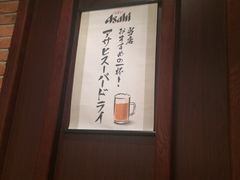 Asahi
当店
おすすめの一杯！
アサヒスーパードライ